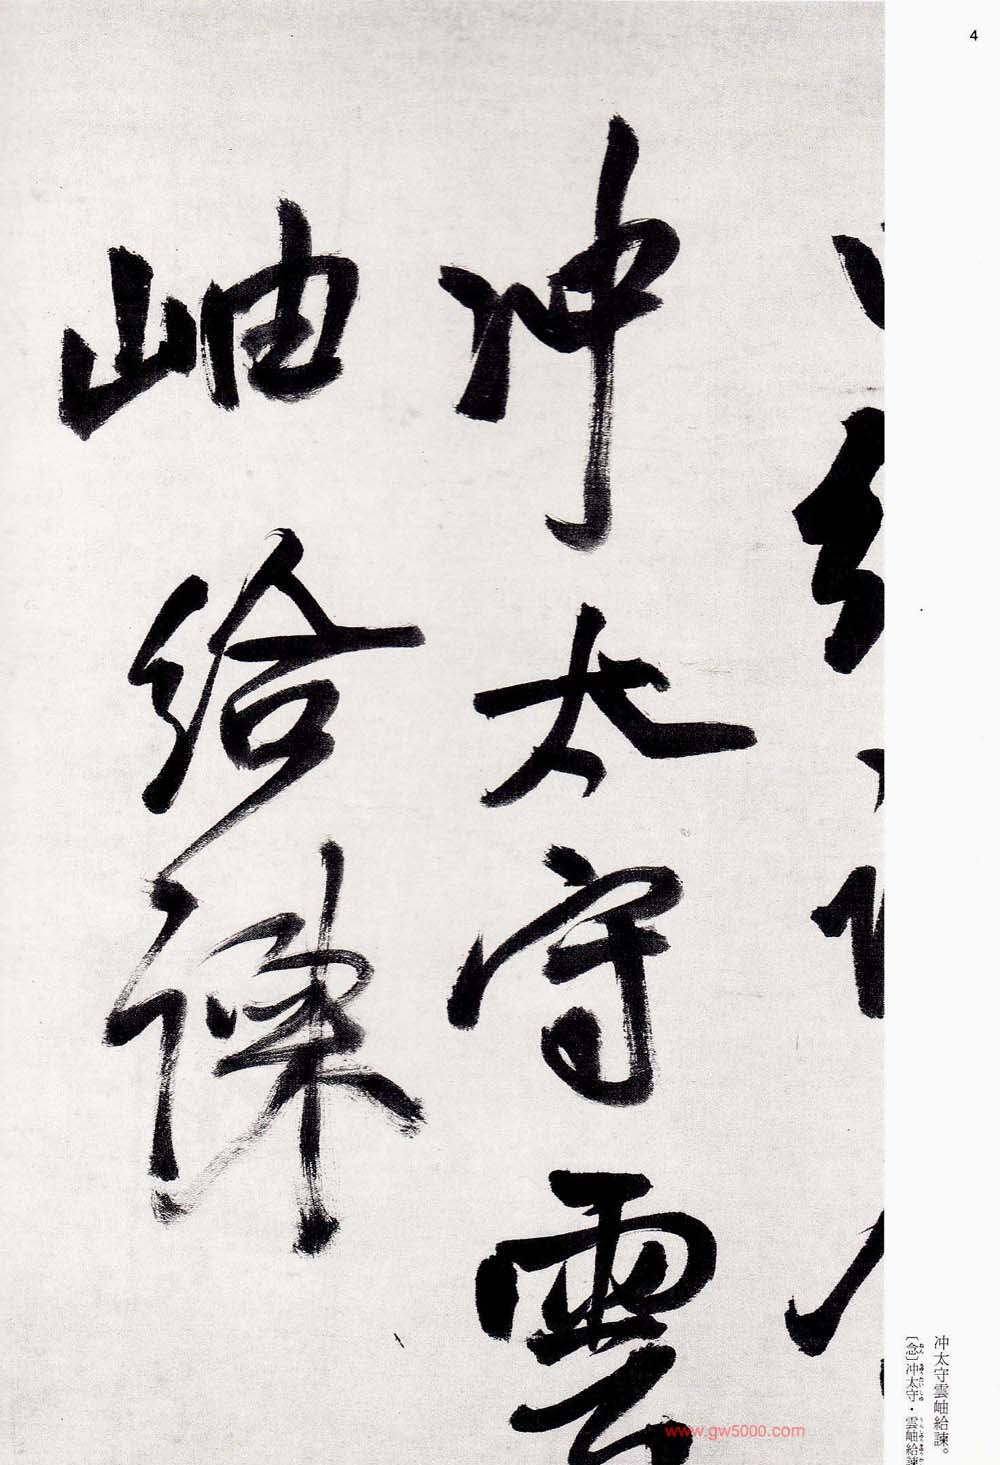 4
冲太守雲
岫給諫
冲太守雲岫給諫。
〔念〕冲太守・雲岫給諫
www.gw5000.com